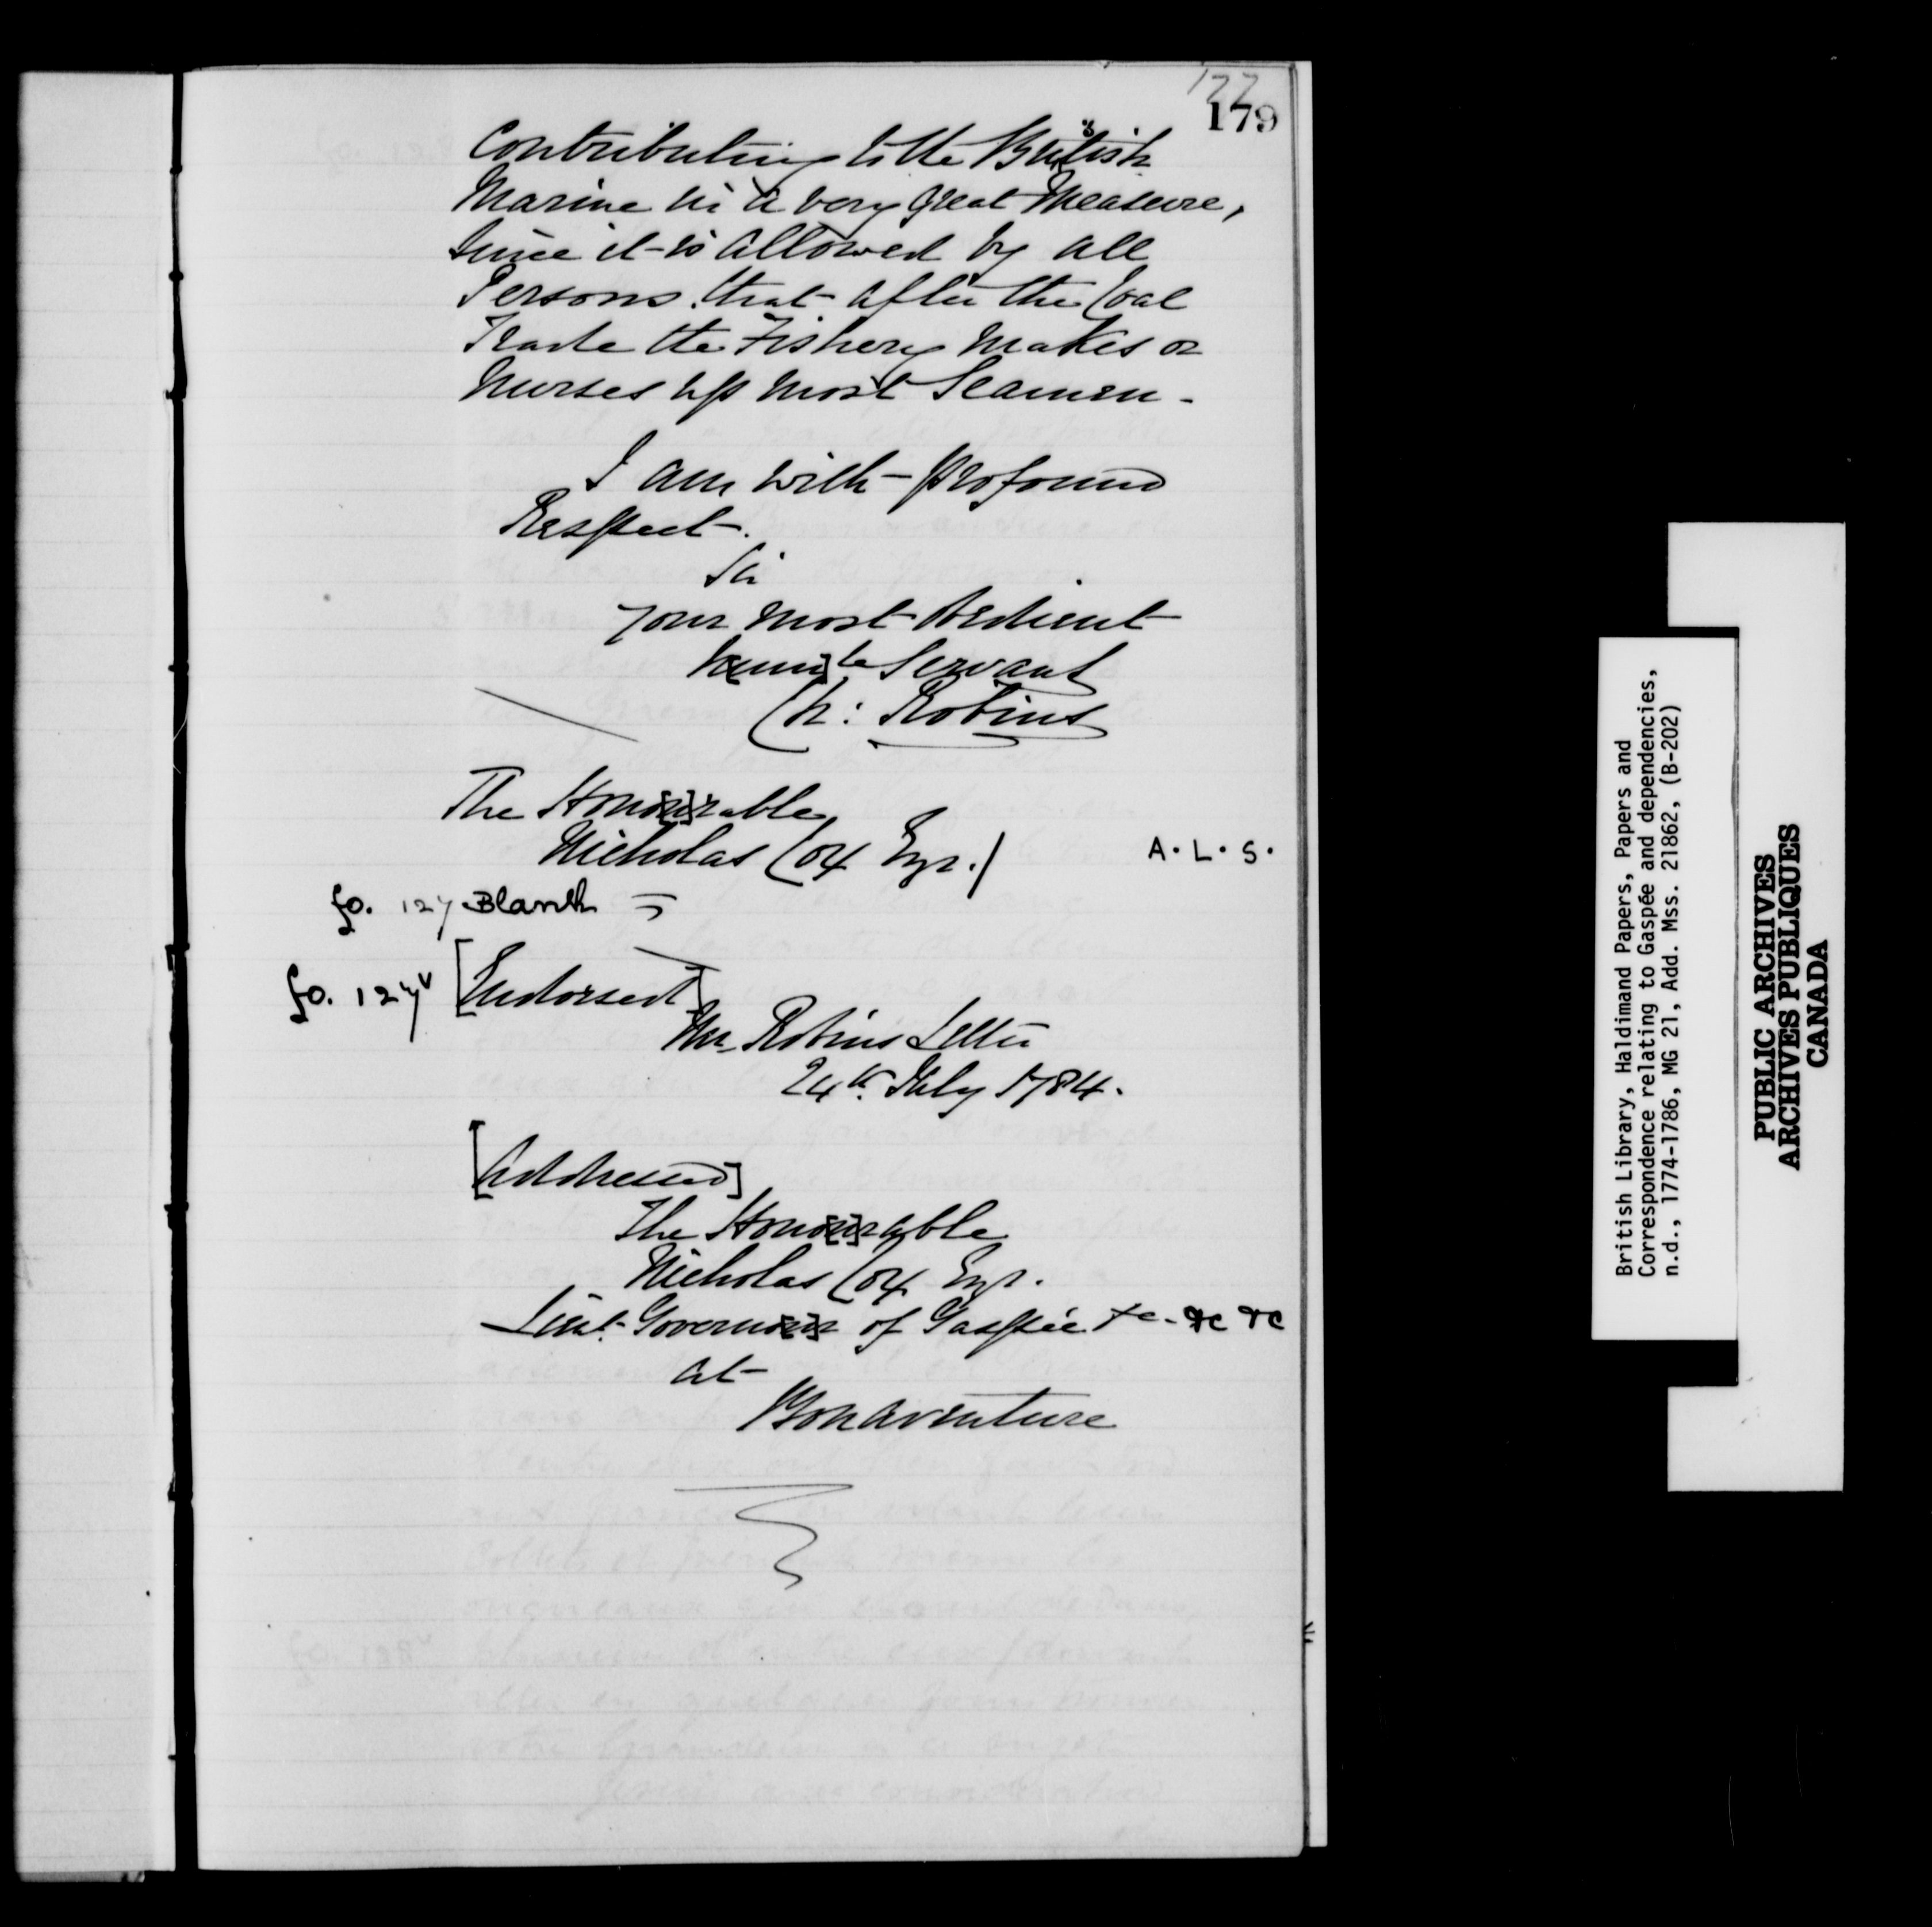 177
179
Contributing to the British
Marine in a very great Measure,
since it is allowed by all
Persons that after the Coal
Trade the Fishery makes or
Nurses up most Seamen -
I am with profound
Respect.
Sir
Your most obedient
humble Servant
Ch: Robins
The Honourable
Nicholas Cox Esqr.
A. L. S.
fo. 127 Blank
fo. 127v [Endorsed]
Mr. Robins Letter
24th July 1784.
[Addressed]
The Honourable
Nicholas Cox Esqr.
Lieut. Governour of Gaspée &c. &c &c
at
Bonaventure
British Library, Haldimand Papers, Papers and
Correspondence relating to Gaspée and dependencies,
n.d., 1774-1786, MG 21, Add. Mss. 21862, (B-202)
PUBLIC ARCHIVES
ARCHIVES PUBLIQUES
CANADA